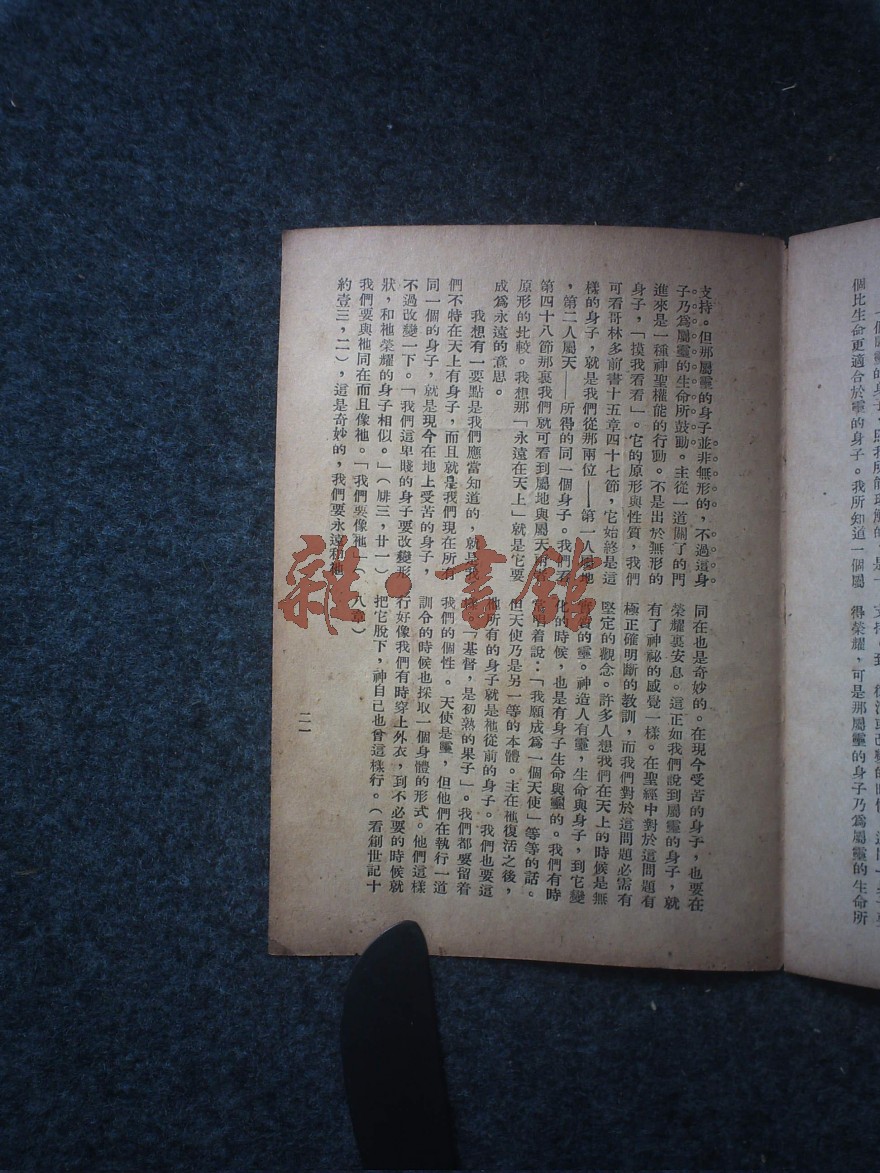 支持。但那屬靈的身子並非無形的，不過這身
子乃爲屬靈的生命所鼓動。主從一道關了的門
進來是一種神聖權能的行動。不是出於無形的
身子，「摸我看看」。它的原形與性質，我們
可看哥林多前書十五章四十七節，它始終是這
樣的身子，就是我們從那兩位——第一人屬地
，第二人屬天——所得的同一個身子。我們看
第四十八節那裏我們就可看到屬地與屬天兩者
原形的比較。我想那「永遠在天上」就是它要
成爲永遠的意思。
我想有一要點是我們應當知道的，就是我
們不特在天上有身子，而且就是我們現在所有
同一個的身子，就是現今在地上受苦的身子，
不過改變一下。「我們這卑賤的身子要改變形
狀，和祂榮耀的身子相似。」（腓三，廿一）
我們要與祂同在而且像祂。「我們要像祂」
約壹三，二），這是奇妙的，我們要永遠和祂
同在也是奇妙的。在現今受苦的身子，也要在
榮耀裏安息。這正如我們說到屬靈的身子，就
有了神祕的感覺一樣。在聖經中對於這問題有
極正確明斷的教訓，而我們對於這問題必需有
堅定的觀念。許多人想我們在天上的時候是無
的靈。神造人有靈，生命與身子，到它變
化的時候，也是有身子生命與靈的。我們有時
唱着說：「我願成爲一個天使」等等的話。
但天使乃是另一等的本體。主在祂復活之後，
祂所有的身子就是祂從前的身子。我們也要這
樣「基督，是初熟的果子」。我們都要留着
我們的個性。天使是靈，但他們在執行一道
訓令的時候也採取一個身體的形式。他們這樣
行好像我們有時穿上外衣，到不必要的時候就
把它脫下，神自己也曾這樣行。（看創世記十
八章）
二一
個比生命更適合於靈的身子。我所知道一個屬
得榮耀，可是那屬靈的身子乃爲屬靈的生命所
雜·書館